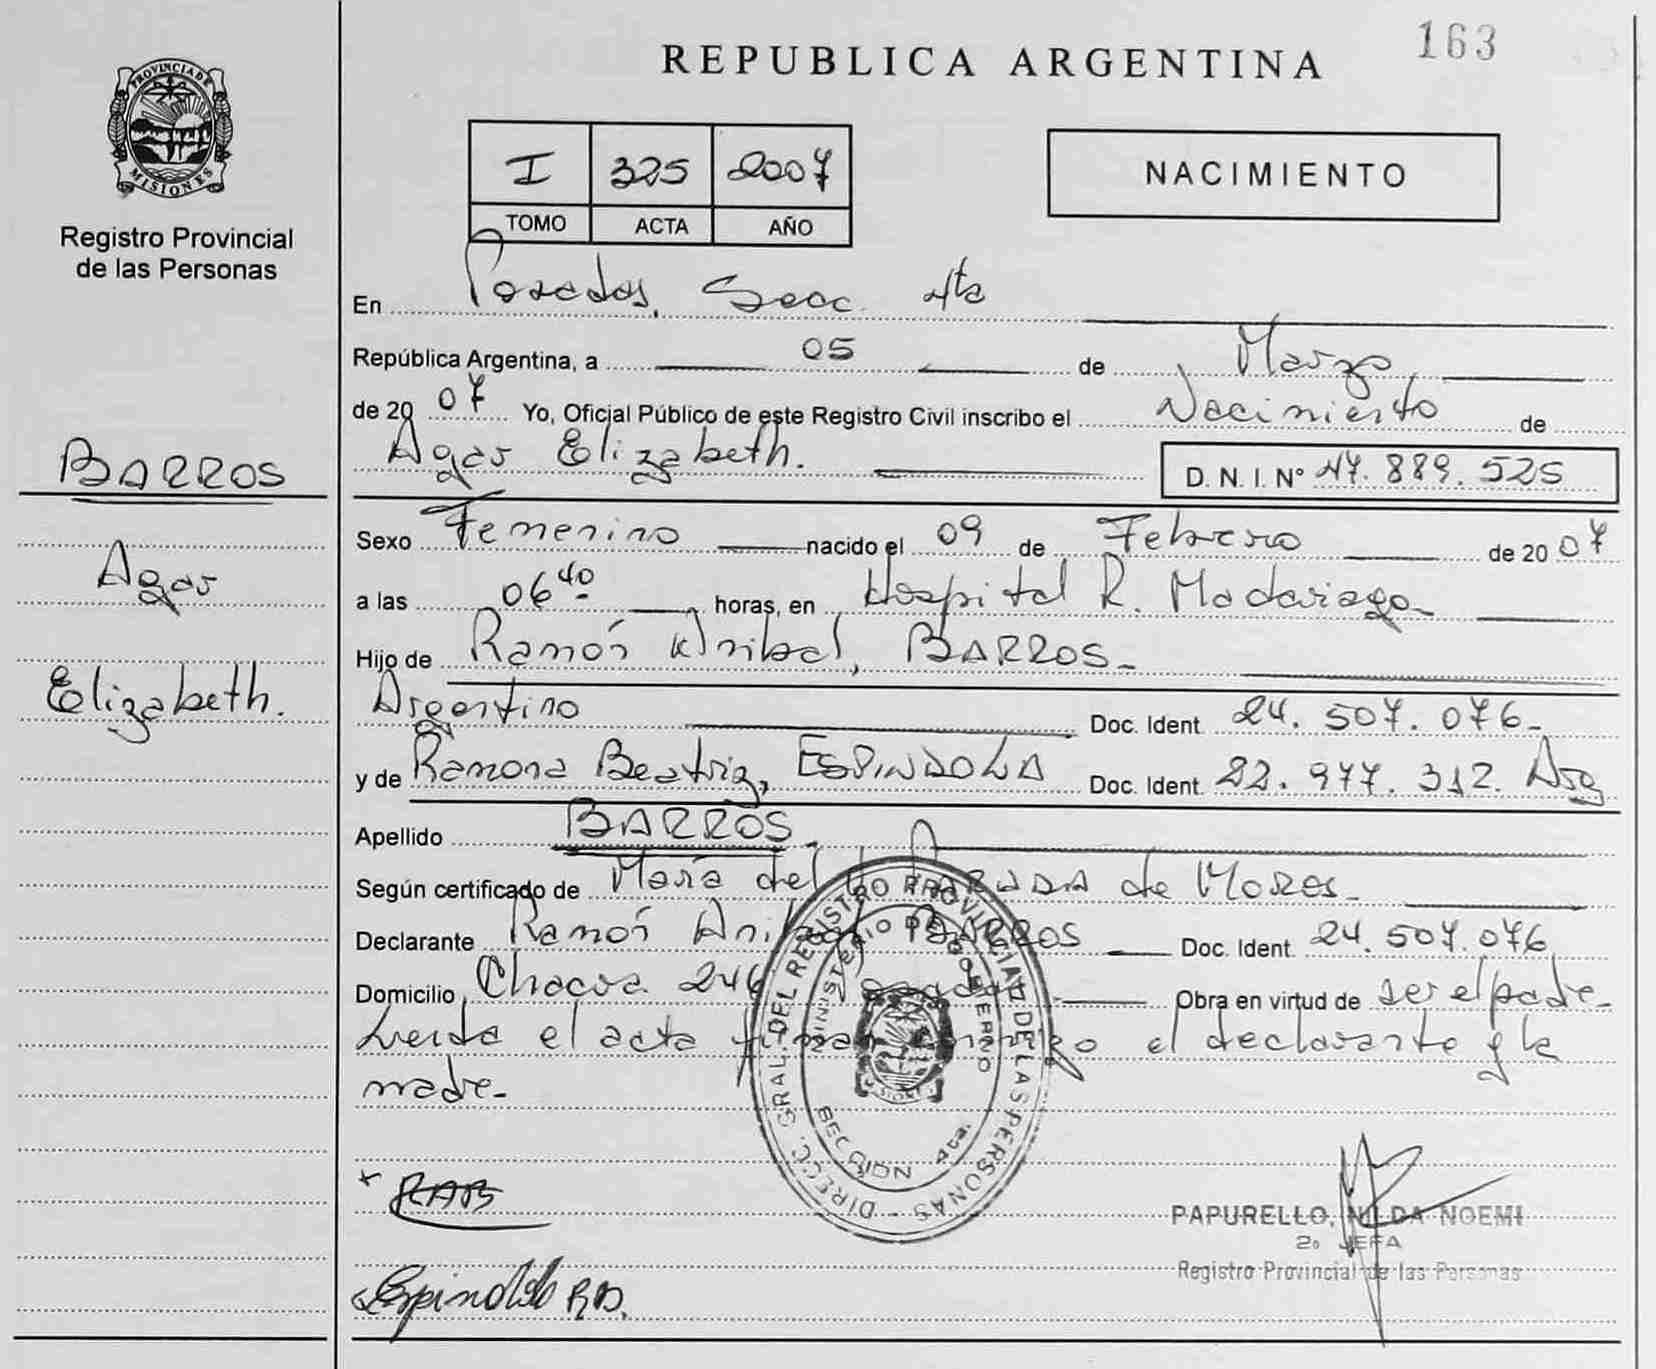 163
REPUBLICA ARGENTINA
PROVINCIA DE MISIONES
Registro Provincial
de las Personas
I 325 2007
TOMO ACTA AÑO
NACIMIENTO
En Posadas, Secc. 4ta
República Argentina, a 05 de Marzo
de 2007 Yo, Oficial Público de este Registro Civil inscribo el Nacimiento de
Agar Elizabeth. D. N. I. Nº 47.889.525
BARROS
Agar
Elizabeth.
Sexo Femenino nacido el 09 de Febrero de 2007
a las 06 40 horas, en Hospital R. Madariaga-
Hijo de Ramón Anibal, BARROS-
Argentino Doc. Ident. 24.507.076-
y de Ramona Beatriz, ESPINDOLA Doc. Ident. 22.977.312. Arg
Apellido BARROS
Según certificado de María del PARADA de Mores-
Declarante Ramón Anibal BARROS Doc. Ident. 24.507.076
Domicilio Chacra 246 Posadas Obra en virtud de ser el padre-
Leida el acta firman conmigo el declarante y la
madre-
DIRECC. GRAL. DEL REGISTRO PROVINCIAL DE LAS PERSONAS
MINISTERIO DE GOBIERNO
MISIONES
SECCION 4ta.
x RAB
PAPURELLO, NILDA NOEMI
2º JEFA
Registro Provincial de las Personas
Espindola RB.